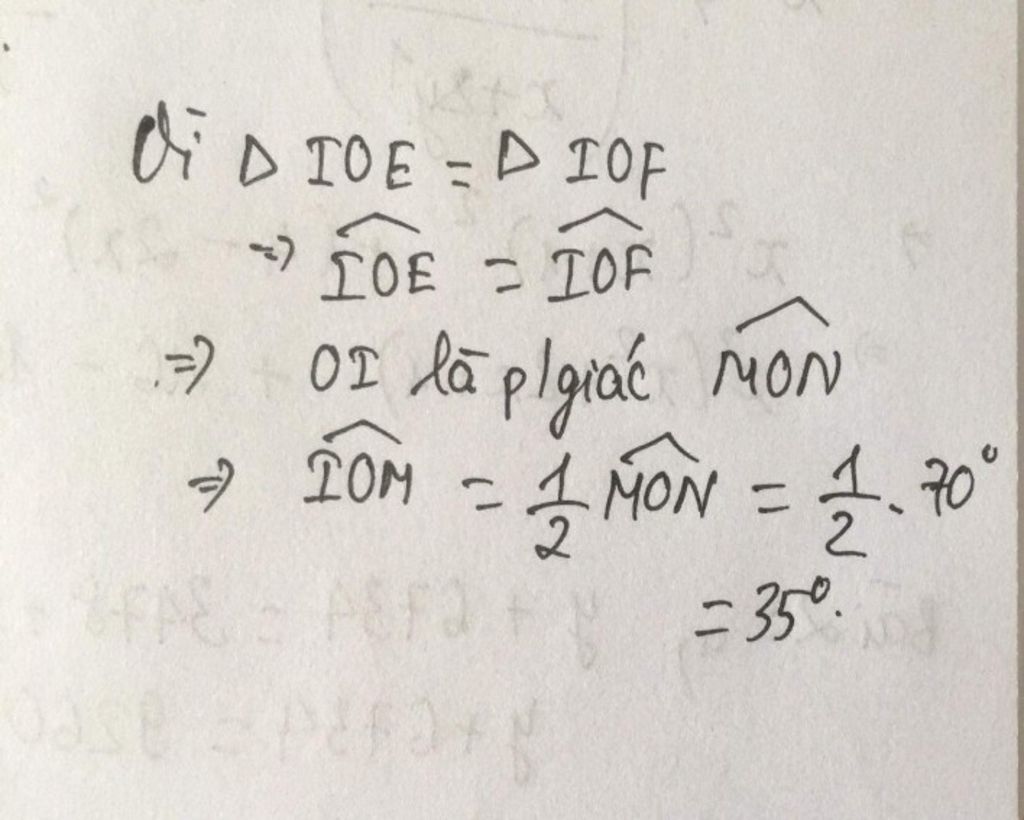 Vì Δ IOE = Δ IOF
⇒ \widehat{IOE} = \widehat{IOF}
⇒ OI là p/giác \widehat{MON}
⇒ \widehat{IOM} = \frac{1}{2} \widehat{MON} = \frac{1}{2} . 70°
= 35°.